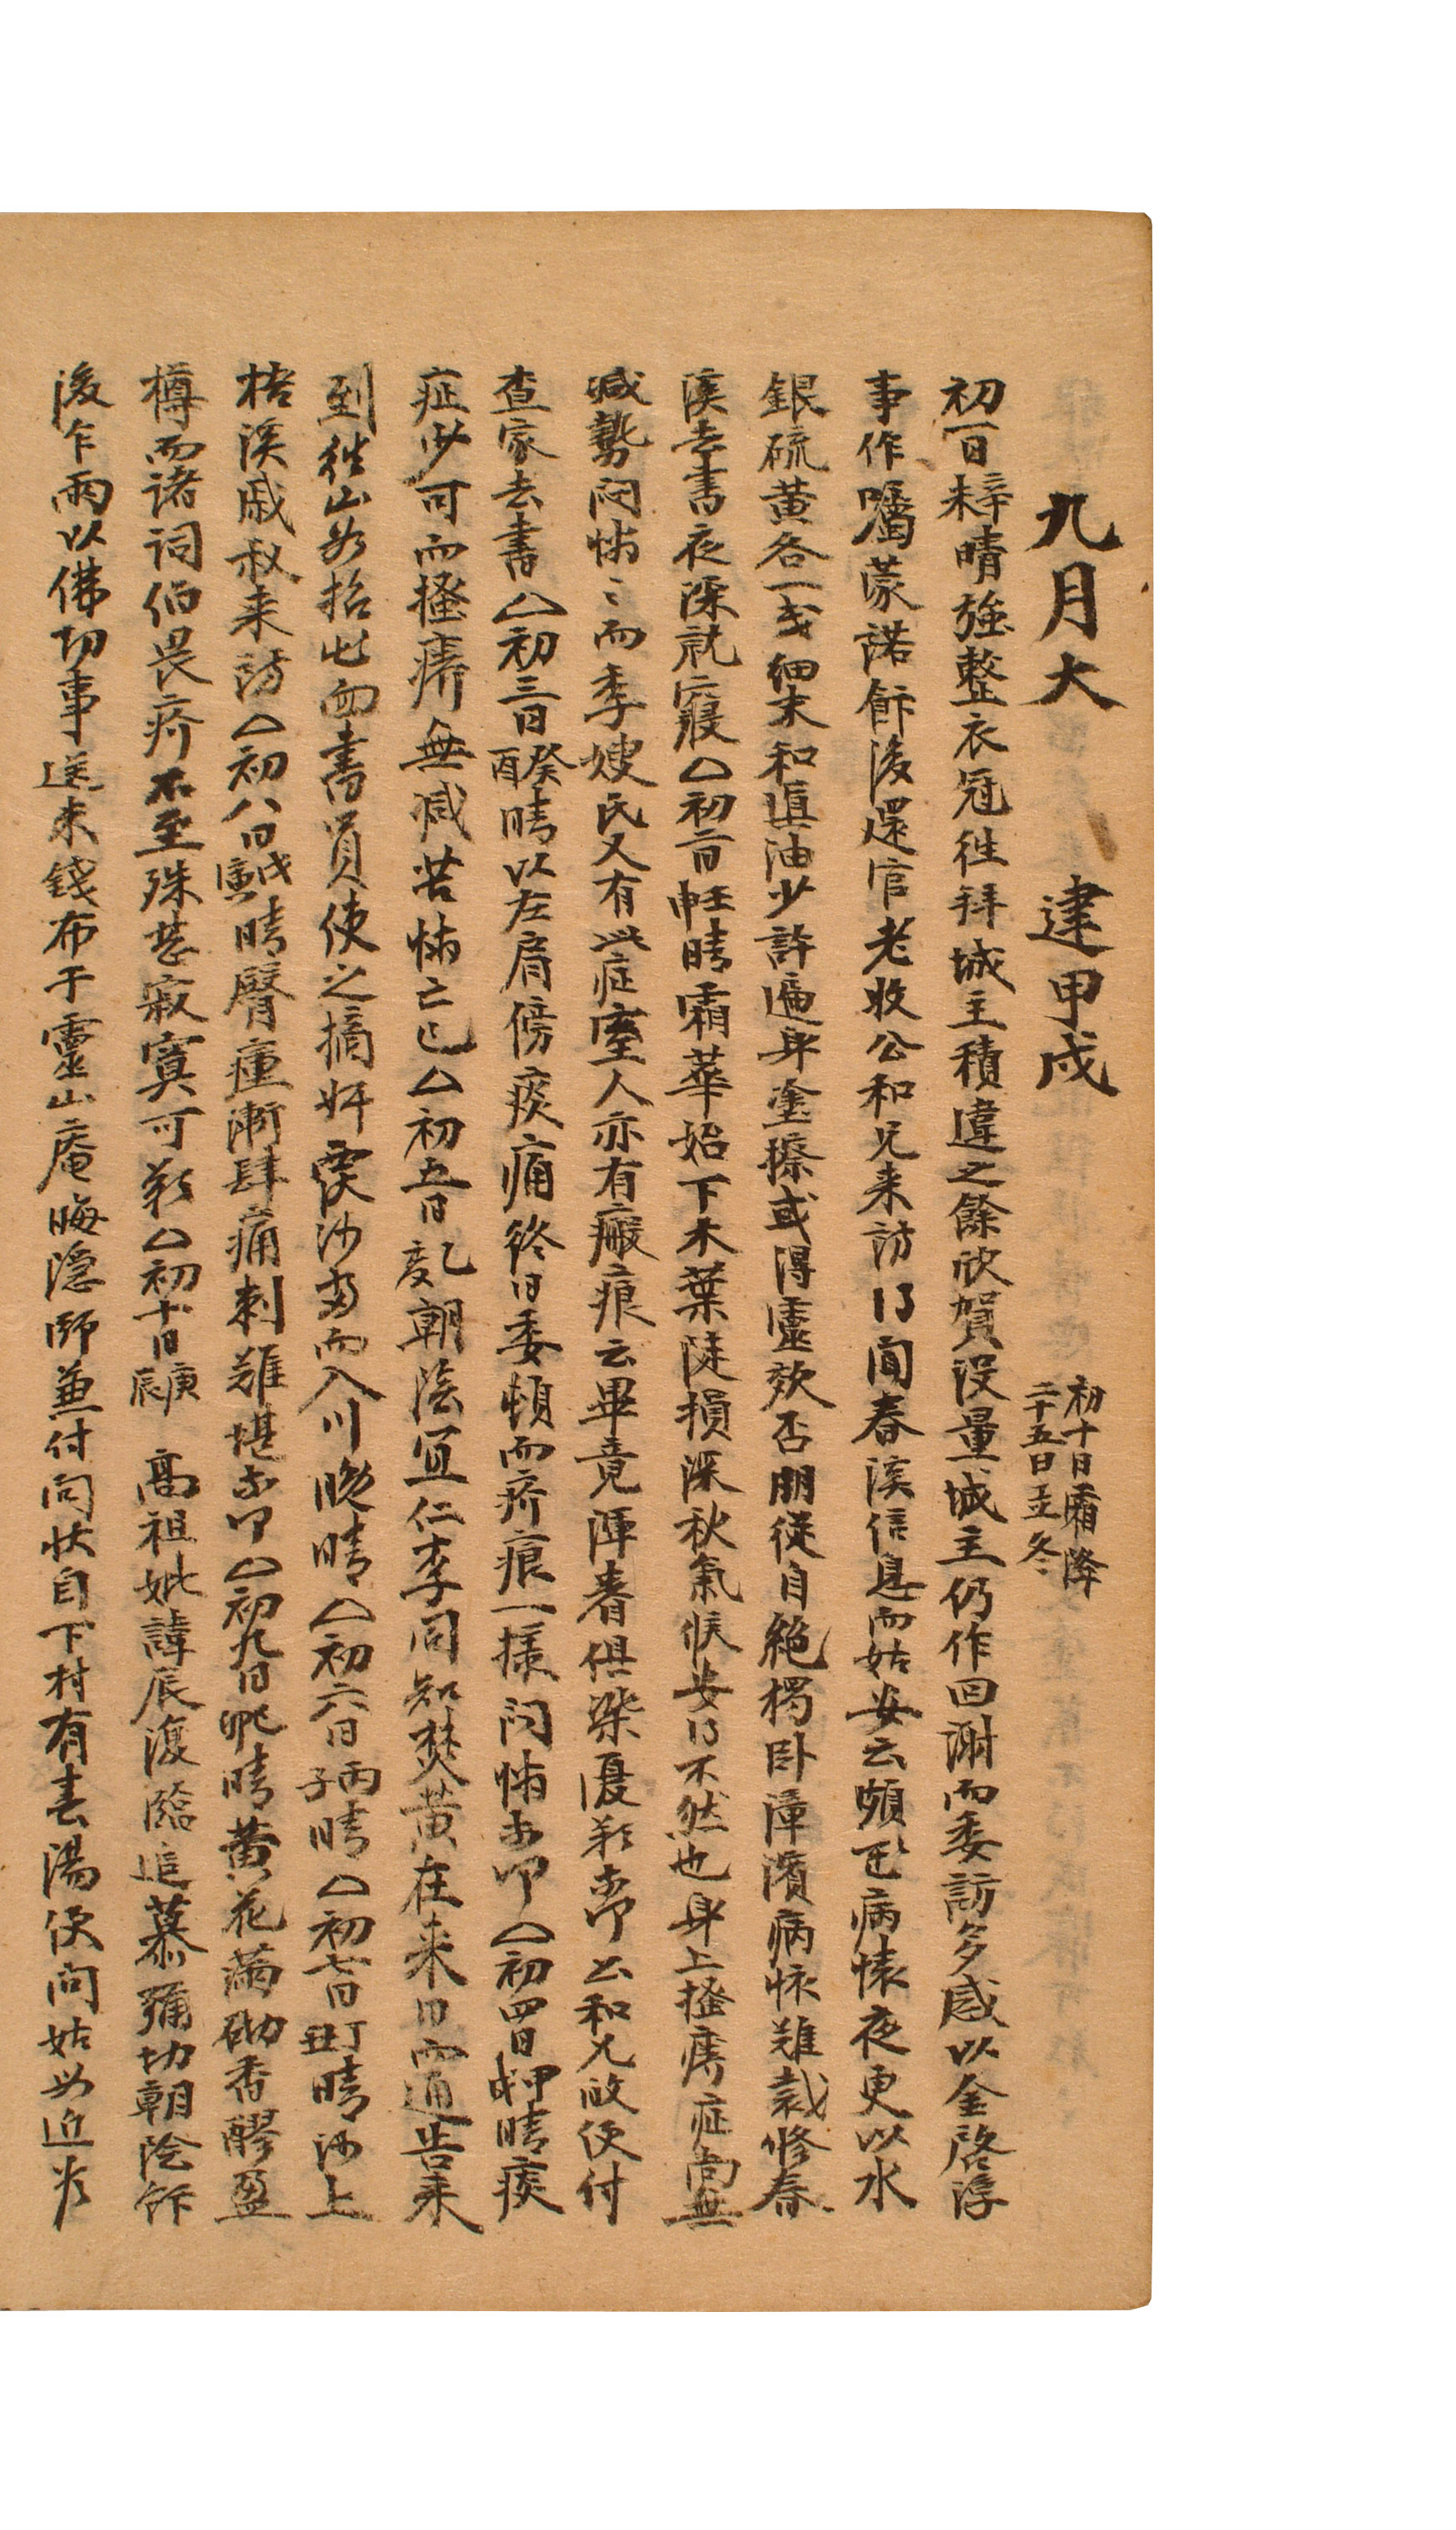 九月大 建甲戌 初十日霜降 二十五日立冬
初一日辛未晴強整衣冠往拜城主積違之餘欣賀沒量城主仍作回謝而委訪多感以金啓淳
事作囑蒙諾飯後還官老牧公和兄来訪得聞春溪信息而姑安云頗正病懷夜更以水
銀硫黄各一戔細末和眞油少許遍身塗擦或得靈效否朋従自絶獨卧漳濱病懷難裁修春
溪去書夜深就寢△初二日壬申晴霜華始下木葉陡損深秋氣候安得不然也身上搔癢症尚無
减勢悶怖〻而季嫂氏又有此症室人亦有瘢痕云畢竟渾眷俱染憂歎専叩公和兄政便付
査家去書△初三日癸酉晴以左肩傍痰痛終日委頓而疥痕一樣悶怖専叩△初四日甲戌晴痰
症少可而搔癢無减苦怖亡已△初五日乙亥朝陰宜仁李同知焚黄在来日而通告来
到徃山 招 書員使之摘奸 沙 而入川晩晴△初六日丙子晴△初七日丁丑晴沙上
梧溪戚叔来訪△初八日戊寅晴臂瘇漸肆痛刺難堪専叩△初九日己卯晴黄花滿砌香醪盈
樽而諸詞伯畏疥不至殊甚寂寞可歎△初十日庚辰 高祖妣諱辰復臨追慕彌切朝陰飯
後乍雨以佛切事送来錢布于靈山庵晦隠師兼付问状自下村有去湯便问姑安近爲